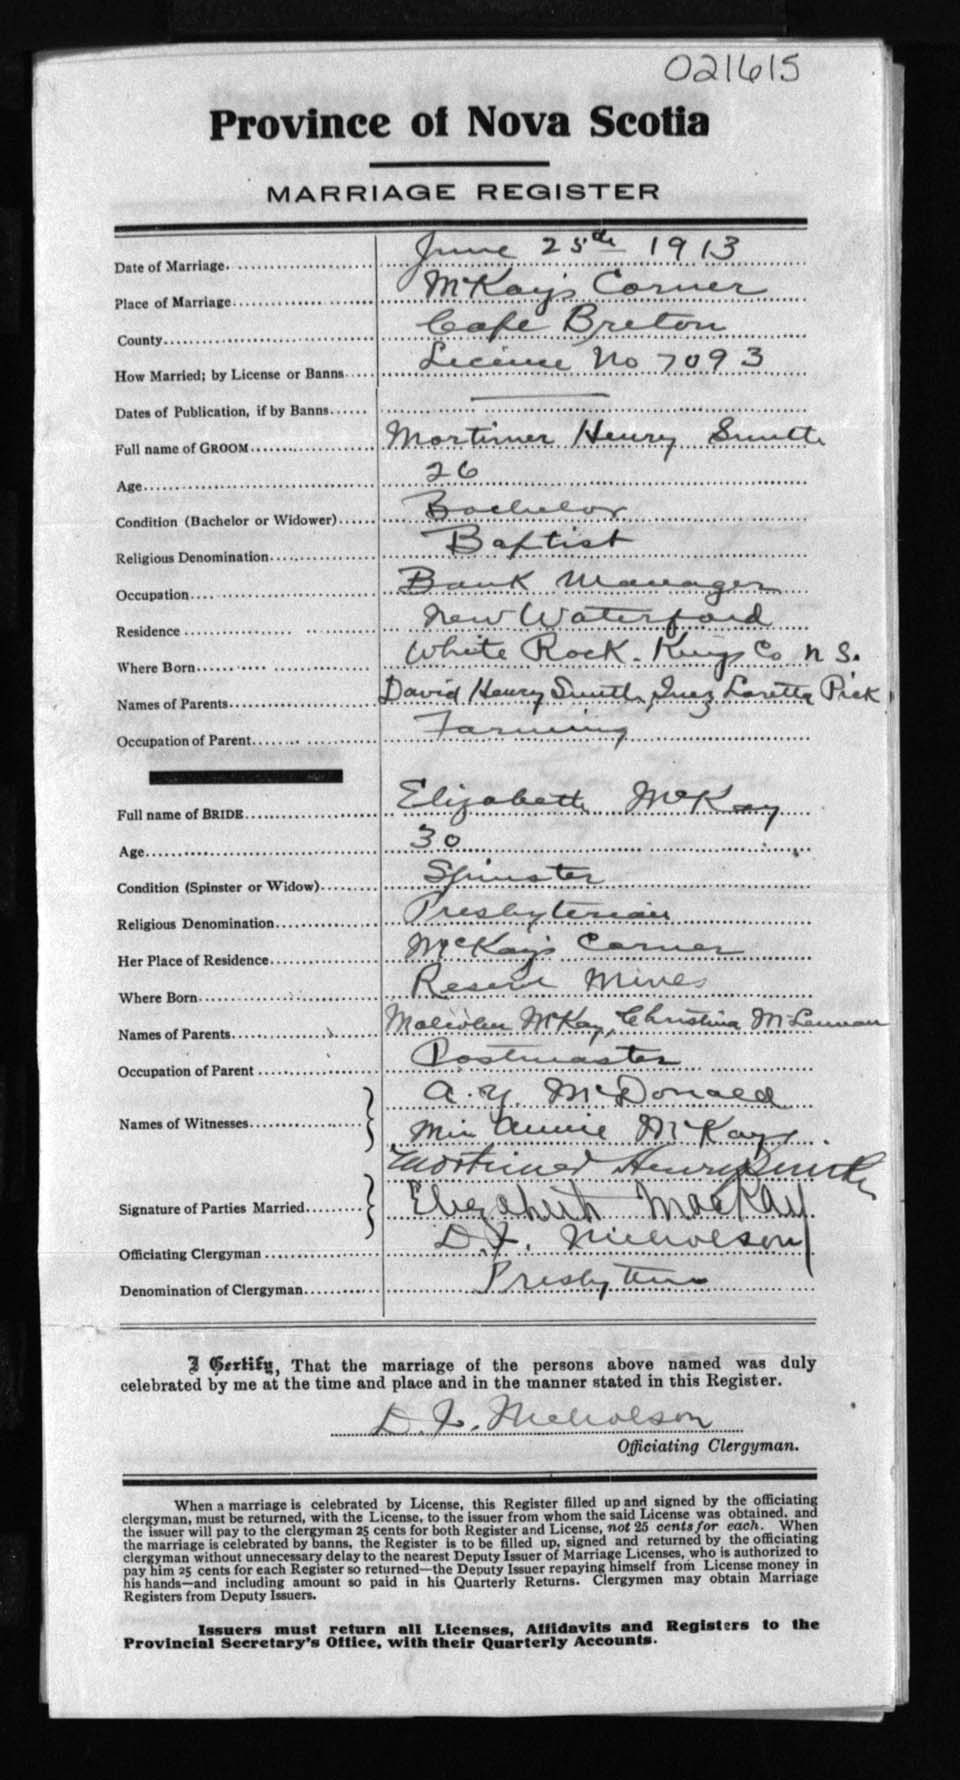 021615
Province of Nova Scotia
MARRIAGE REGISTER
Date of Marriage. June 25th 1913
Place of Marriage McKay's Corner
County Cape Breton
How Married; by License or Banns License No 7093
Dates of Publication, if by Banns
Full name of GROOM Mortimer Henry Smith
Age 26
Condition (Bachelor or Widower) Bachelor
Religious Denomination Baptist
Occupation Bank Manager
Residence New Waterford
Where Born White Rock. Kings Co N S.
Names of Parents David Henry Smith, Inez Loretta Pick
Occupation of Parent Farming
Full name of BRIDE Elizabeth McKay
Age 30
Condition (Spinster or Widow) Spinster
Religious Denomination Presbyterian
Her Place of Residence McKay's Corner
Where Born Reserve Mines
Names of Parents Malcolm McKay, Christina McLennan
Occupation of Parent Postmaster
Names of Witnesses A. Y. McDonald
Miss Annie McKay
Mortimer Henry Smith
Signature of Parties Married Elizabeth MacKay
Officiating Clergyman D. J. Nicholson
Denomination of Clergyman Presbytern
I Certify, That the marriage of the persons above named was duly
celebrated by me at the time and place and in the manner stated in this Register.
D. J. Nicholson
Officiating Clergyman.
When a marriage is celebrated by License, this Register filled up and signed by the officiating
clergyman, must be returned, with the License, to the issuer from whom the said License was obtained, and
the issuer will pay to the clergyman 25 cents for both Register and License, not 25 cents for each. When
the marriage is celebrated by banns, the Register is to be filled up, signed and returned by the officiating
clergyman without unnecessary delay to the nearest Deputy Issuer of Marriage Licenses, who is authorized to
pay him 25 cents for each Register so returned—the Deputy Issuer repaying himself from License money in
his hands—and including amount so paid in his Quarterly Returns. Clergymen may obtain Marriage
Registers from Deputy Issuers.
Issuers must return all Licenses, Affidavits and Registers to the
Provincial Secretary's Office, with their Quarterly Accounts.